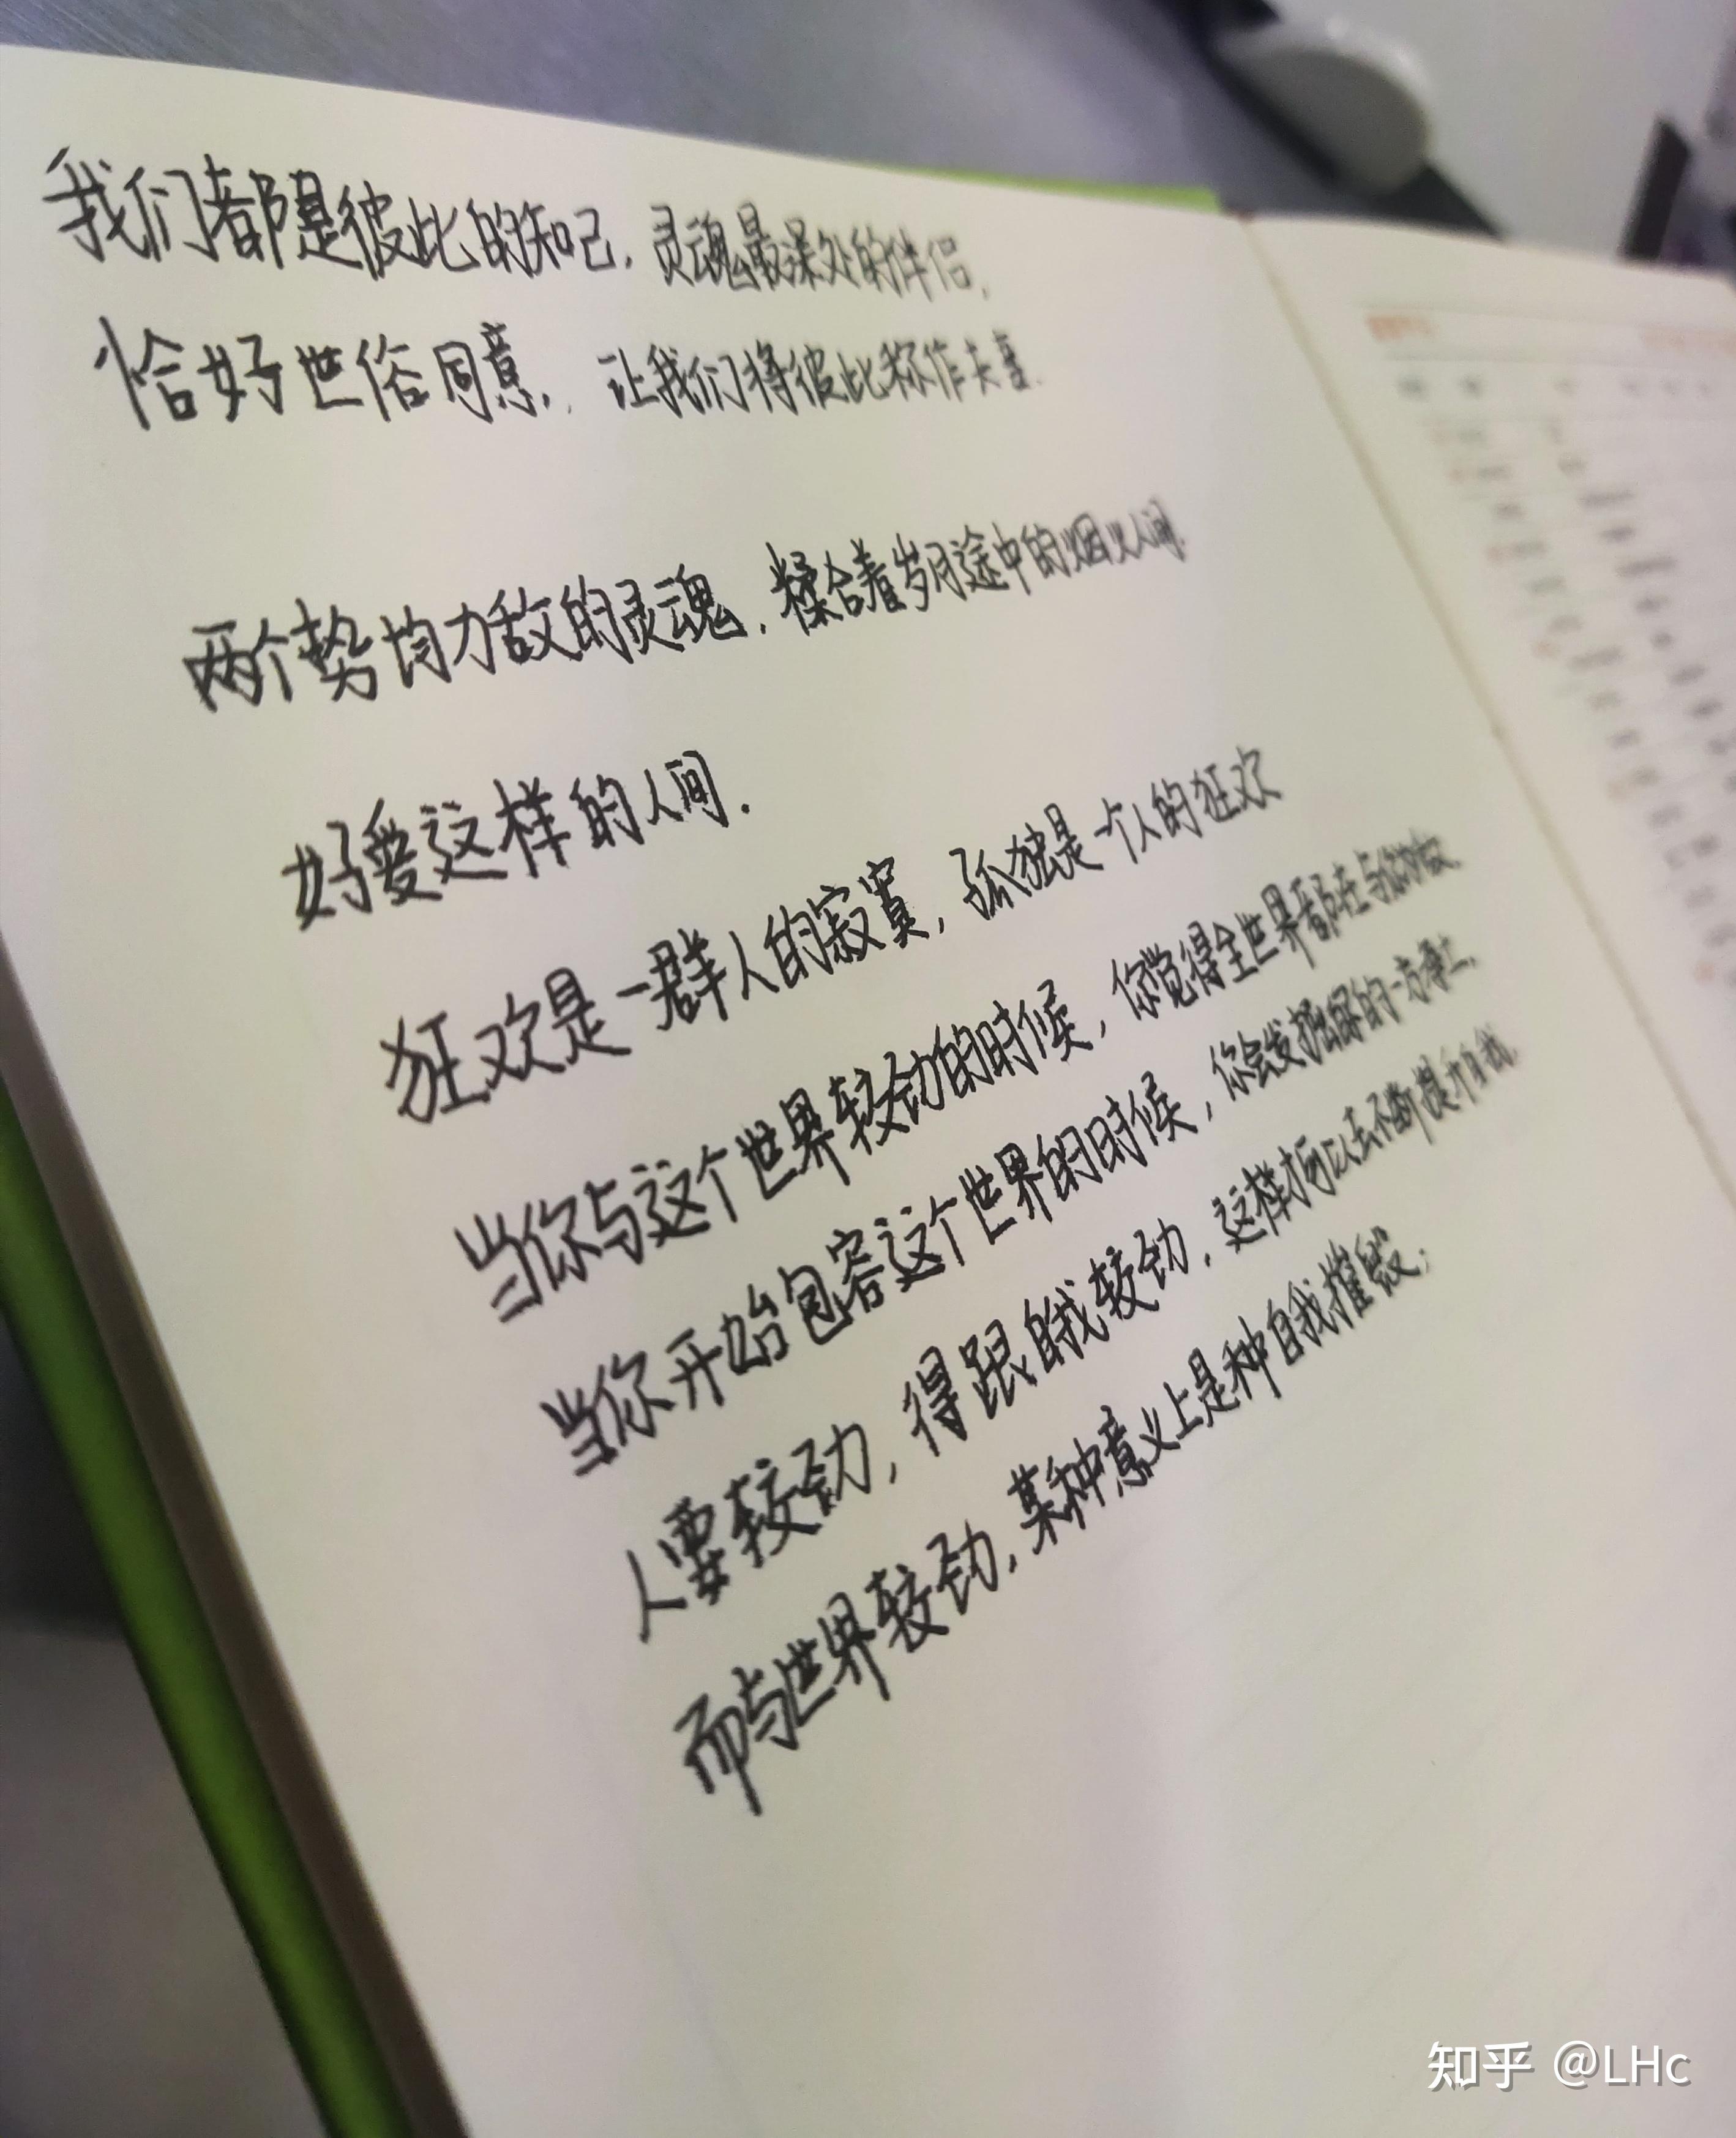 我们都是彼此的知己，灵魂最深处的伴侣，
恰好世俗同意，让我们将彼此称作夫妻.
两个势均力敌的灵魂，揉合着岁月途中的烟火人间.
好爱这样的人间.
狂欢是一群人的寂寞，孤独是一个人的狂欢
当你与这个世界较劲的时候，你觉得全世界都在与你为敌.
当你开始包容这个世界的时候，你会发掘你的一方净土.
人要较劲，得跟自我较劲，这样才可以去不断提升自我.
而与世界较劲，某种意义上是种自我摧毁；
知乎 @LHc